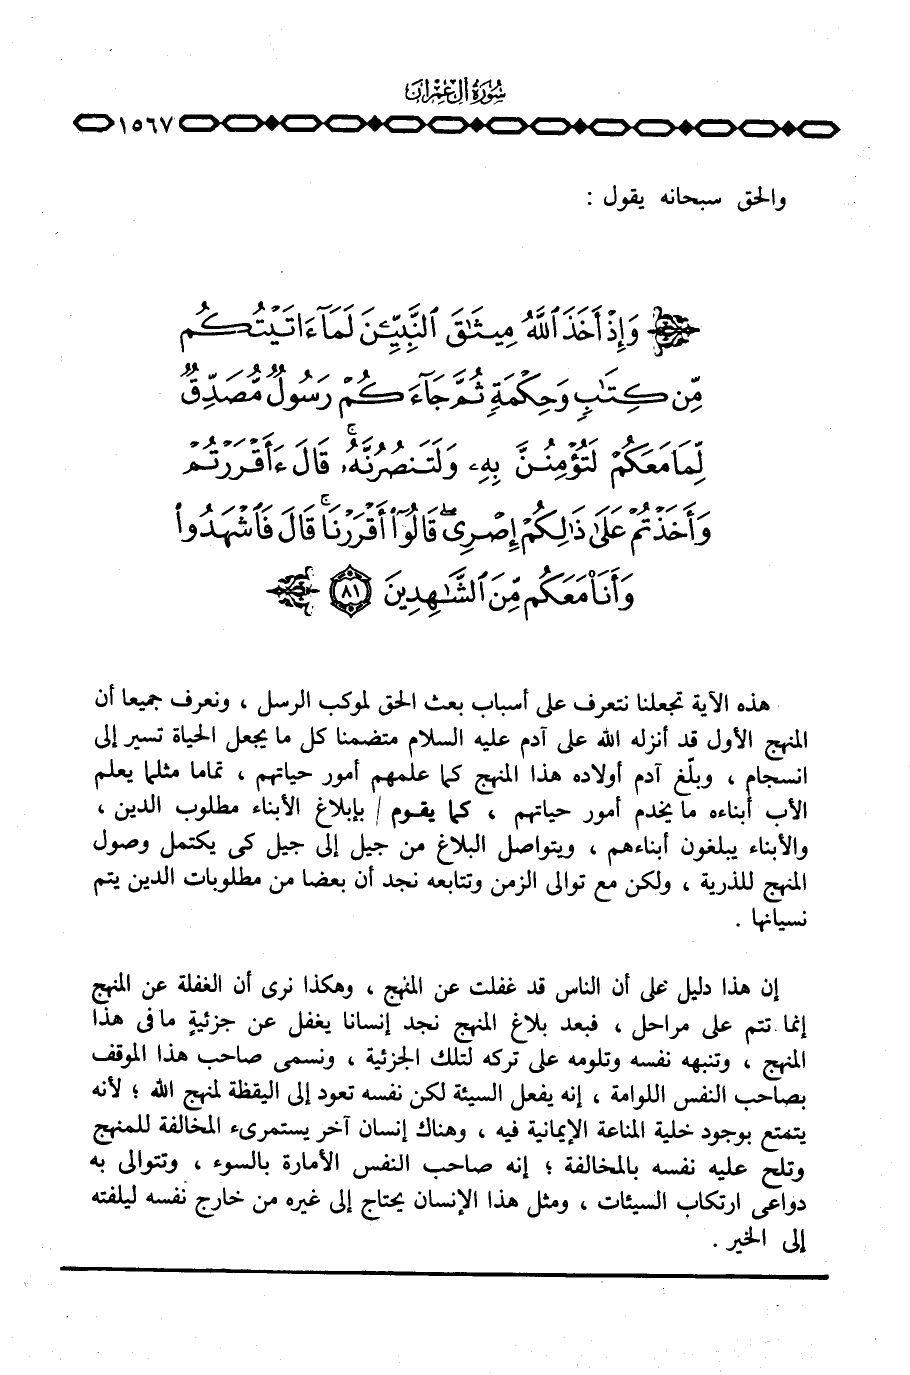 سُورَةُ آلِ عِمْرَانَ
١٥٦٧
والحق سبحانه يقول :
وَإِذْ أَخَذَ ٱللَّهُ مِيثَٰقَ ٱلنَّبِيِّـۧنَ لَمَآ ءَاتَيْتُكُم
مِّن كِتَٰبٍ وَحِكْمَةٍ ثُمَّ جَآءَكُمْ رَسُولٌ مُّصَدِّقٌ
لِّمَا مَعَكُمْ لَتُؤْمِنُنَّ بِهِۦ وَلَتَنصُرُنَّهُۥ ۚ قَالَ ءَأَقْرَرْتُمْ
وَأَخَذْتُمْ عَلَىٰ ذَٰلِكُمْ إِصْرِى ۖ قَالُوٓا۟ أَقْرَرْنَا ۚ قَالَ فَٱشْهَدُوا۟
وَأَنَا۠ مَعَكُم مِّنَ ٱلشَّٰهِدِينَ ٨١
هذه الآية تجعلنا نتعرف على أسباب بعث الحق لموكب الرسل ، ونعرف جميعا أن
المنهج الأول قد أنزله الله على آدم عليه السلام متضمنا كل ما يجعل الحياة تسير إلى
انسجام ، وبلّغ آدم أولاده هذا المنهج كما علمهم أمور حياتهم ، تماما مثلما يعلم
الأب أبناءه ما يخدم أمور حياتهم ، كما يقوم / بإبلاغ الأبناء مطلوب الدين ،
والأبناء يبلغون أبناءهم ، ويتواصل البلاغ من جيل إلى جيل كى يكتمل وصول
المنهج للذرية ، ولكن مع توالى الزمن وتتابعه نجد أن بعضا من مطلوبات الدين يتم
نسيانها .
إن هذا دليل على أن الناس قد غفلت عن المنهج ، وهكذا نرى أن الغفلة عن المنهج
إنما تتم على مراحل ، فبعد بلاغ المنهج نجد إنسانا يغفل عن جزئيةٍ ما فى هذا
المنهج ، وتنبهه نفسه وتلومه على تركه لتلك الجزئية ، ونسمى صاحب هذا الموقف
بصاحب النفس اللوامة ، إنه يفعل السيئة لكن نفسه تعود إلى اليقظة لمنهج الله ؛ لأنه
يتمتع بوجود خلية المناعة الإيمانية فيه ، وهناك إنسان آخر يستمرىء المخالفة للمنهج
وتلح عليه نفسه بالمخالفة ؛ إنه صاحب النفس الأمارة بالسوء ، وتتوالى به
دواعى ارتكاب السيئات ، ومثل هذا الإنسان يحتاج إلى غيره من خارج نفسه ليلفته
إلى الخير .